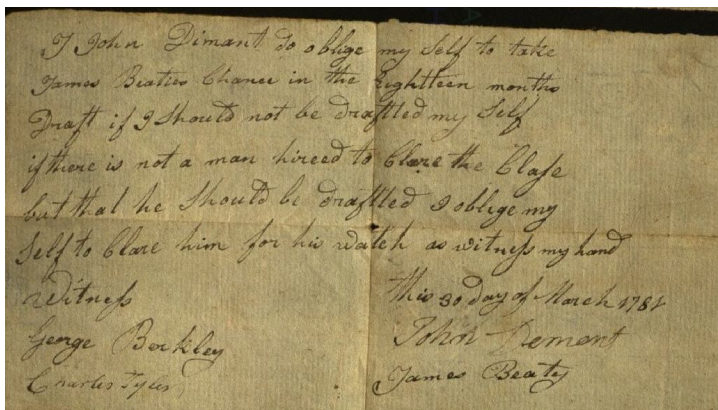 I John Dimant do oblige my Self to take
James Beaties Chance in the Eighteen months
Draft if I Should not be draftled my Self
if there is not a man hireed to Clare the Clase
but that he Should be draftled I oblige my
Self to Clare him for his Watch as witness my hand
Witness this 30 day of March 1781
George Berkley John Dement
Charles Tyler James Beaty